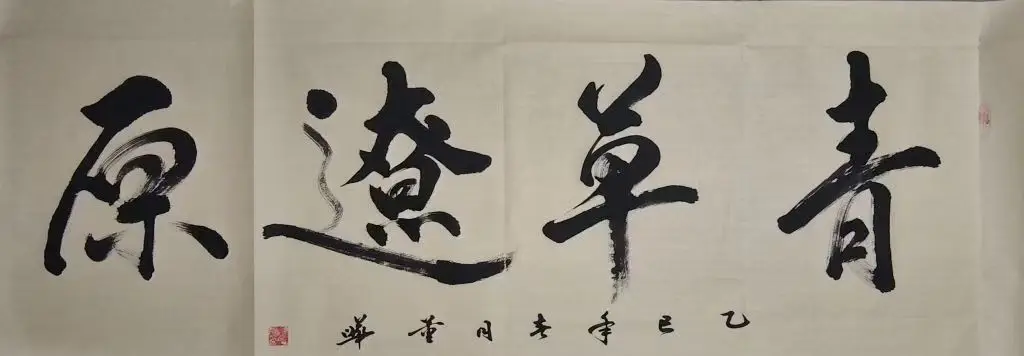 青草遼原
乙巳年春月董曄